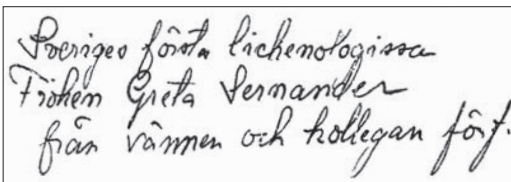 Sveriges första lichenologissa
Fröken Greta Sernander
från vännen och kollegan förf.